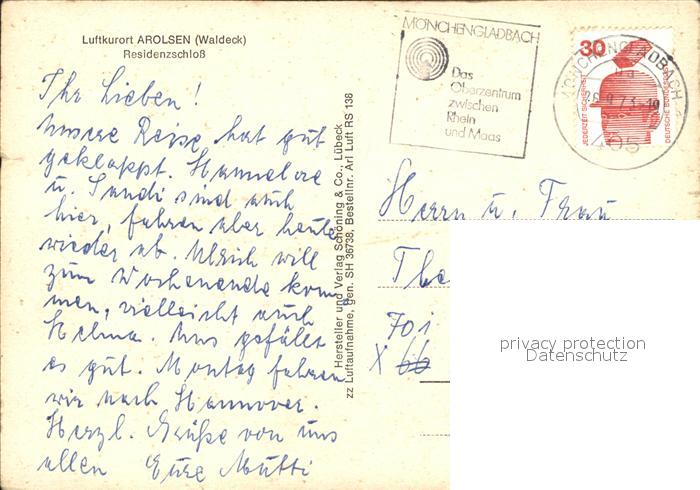 Luftkurort AROLSEN (Waldeck)
Residenzschloß
Ihr Lieben!
Unsere Reise hat gut
geklappt. Hannelore
u. Sandi sind auch
hier, fahren aber heute
wieder ab. Ulrich will
zum Wochenende kom
men, vielleicht auch
Helma. Uns gefällt
es gut. Montag fahren
wir nach Hannover.
Herzl. Grüße von uns
allen Eure Mutti
Hersteller und Verlag Schöning & Co., Lübeck
zz Luftaufnahme, gen. SH 36738, Bestellnr. Arl Luft RS 136
MÖNCHENGLADBACH
Das
Oberzentrum
zwischen
Rhein
und Maas
MÖNCHENGLADBACH
405
30
JEDERZEIT SICHERHEIT
DEUTSCHE BUNDESPOST
Herrn u. Frau
X 66
privacy protection
Datenschutz